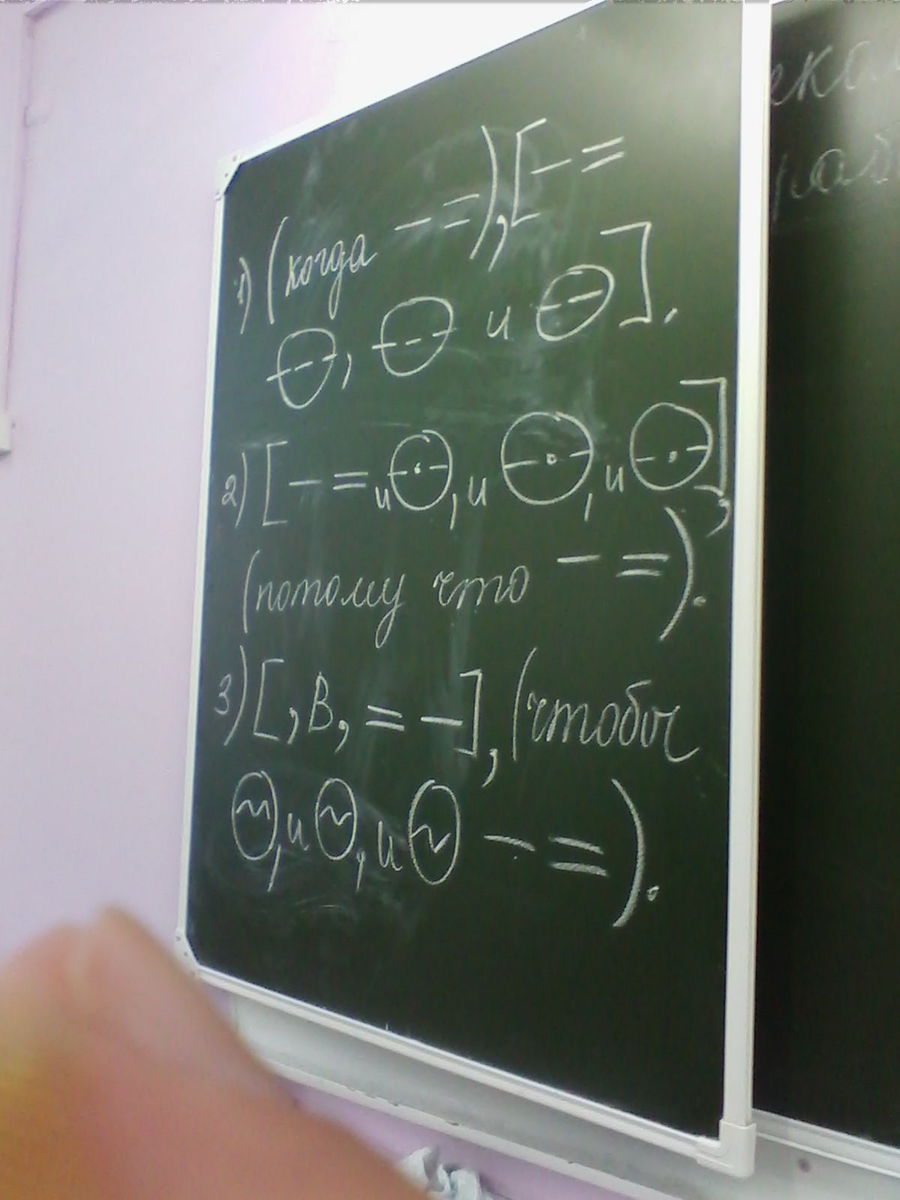 1) (когда – =), [– =
⊖, ⊖ и ⊖].
2) [– = и ⊙, и ⊙, и ⊙],
(потому что – =).
3) [, В, = –], (чтобы
Ⓜ, и Ⓜ, и Ⓜ – =).